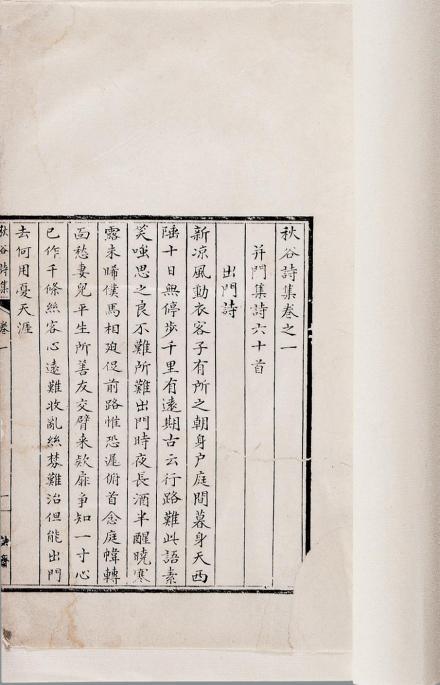 秋谷詩集卷之一
并門集詩六十首
出門詩
新涼風動衣客子有所之朝身户庭間暮身天西
陲十日無停步千里有遠期古云行路難此語素
笑嗤思之良不難所難出門時夜長酒半醒曉寒
露未晞僕馬相廹促前路惟恐遲俯首念庭幃轉
面愁妻兒平生所善友交臂來欵扉爭知一寸心
已作千條絲客心遠難收亂絲棼難治但能出門
去何用憂天涯
秋谷詩集 卷一
一